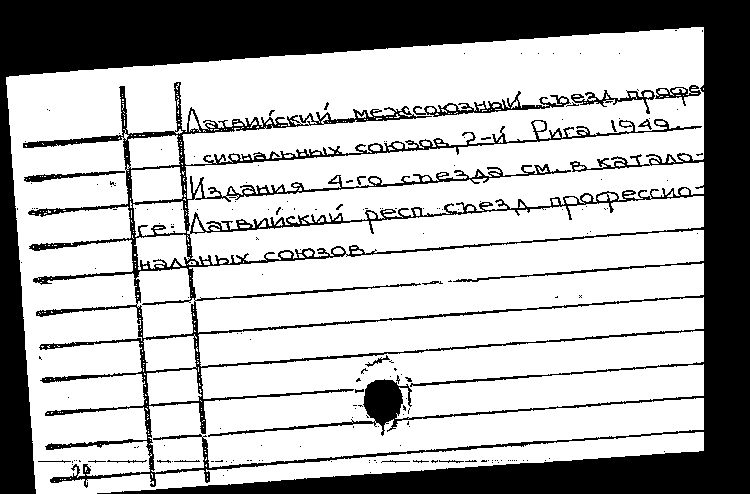 Латвийский межсоюзный съезд профес
сиональных союзов, 2-й. Рига. 1949.
Издания 4-го съезда см. в катало-
ге: Латвийский респ. съезд профессио-
нальных союзов.